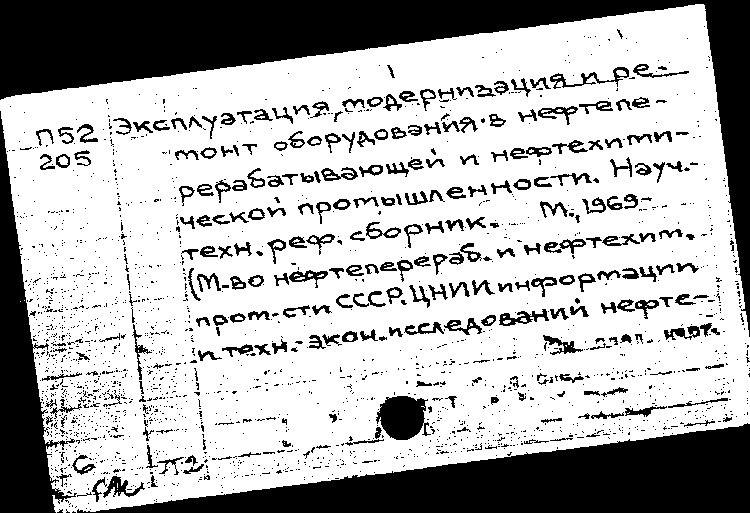 П52
205
Эксплуатация, модернизация и ре-
монт оборудования в нефтепе-
рерабатывающей и нефтехими-
ческой промышленности. Науч.-
техн. реф. сборник. М., 1969-
(М-во нефтеперераб. и нефтехим.
пром-сти СССР. ЦНИИ информации
и техн.-экон. исследований нефте-
См. след.
6 П2